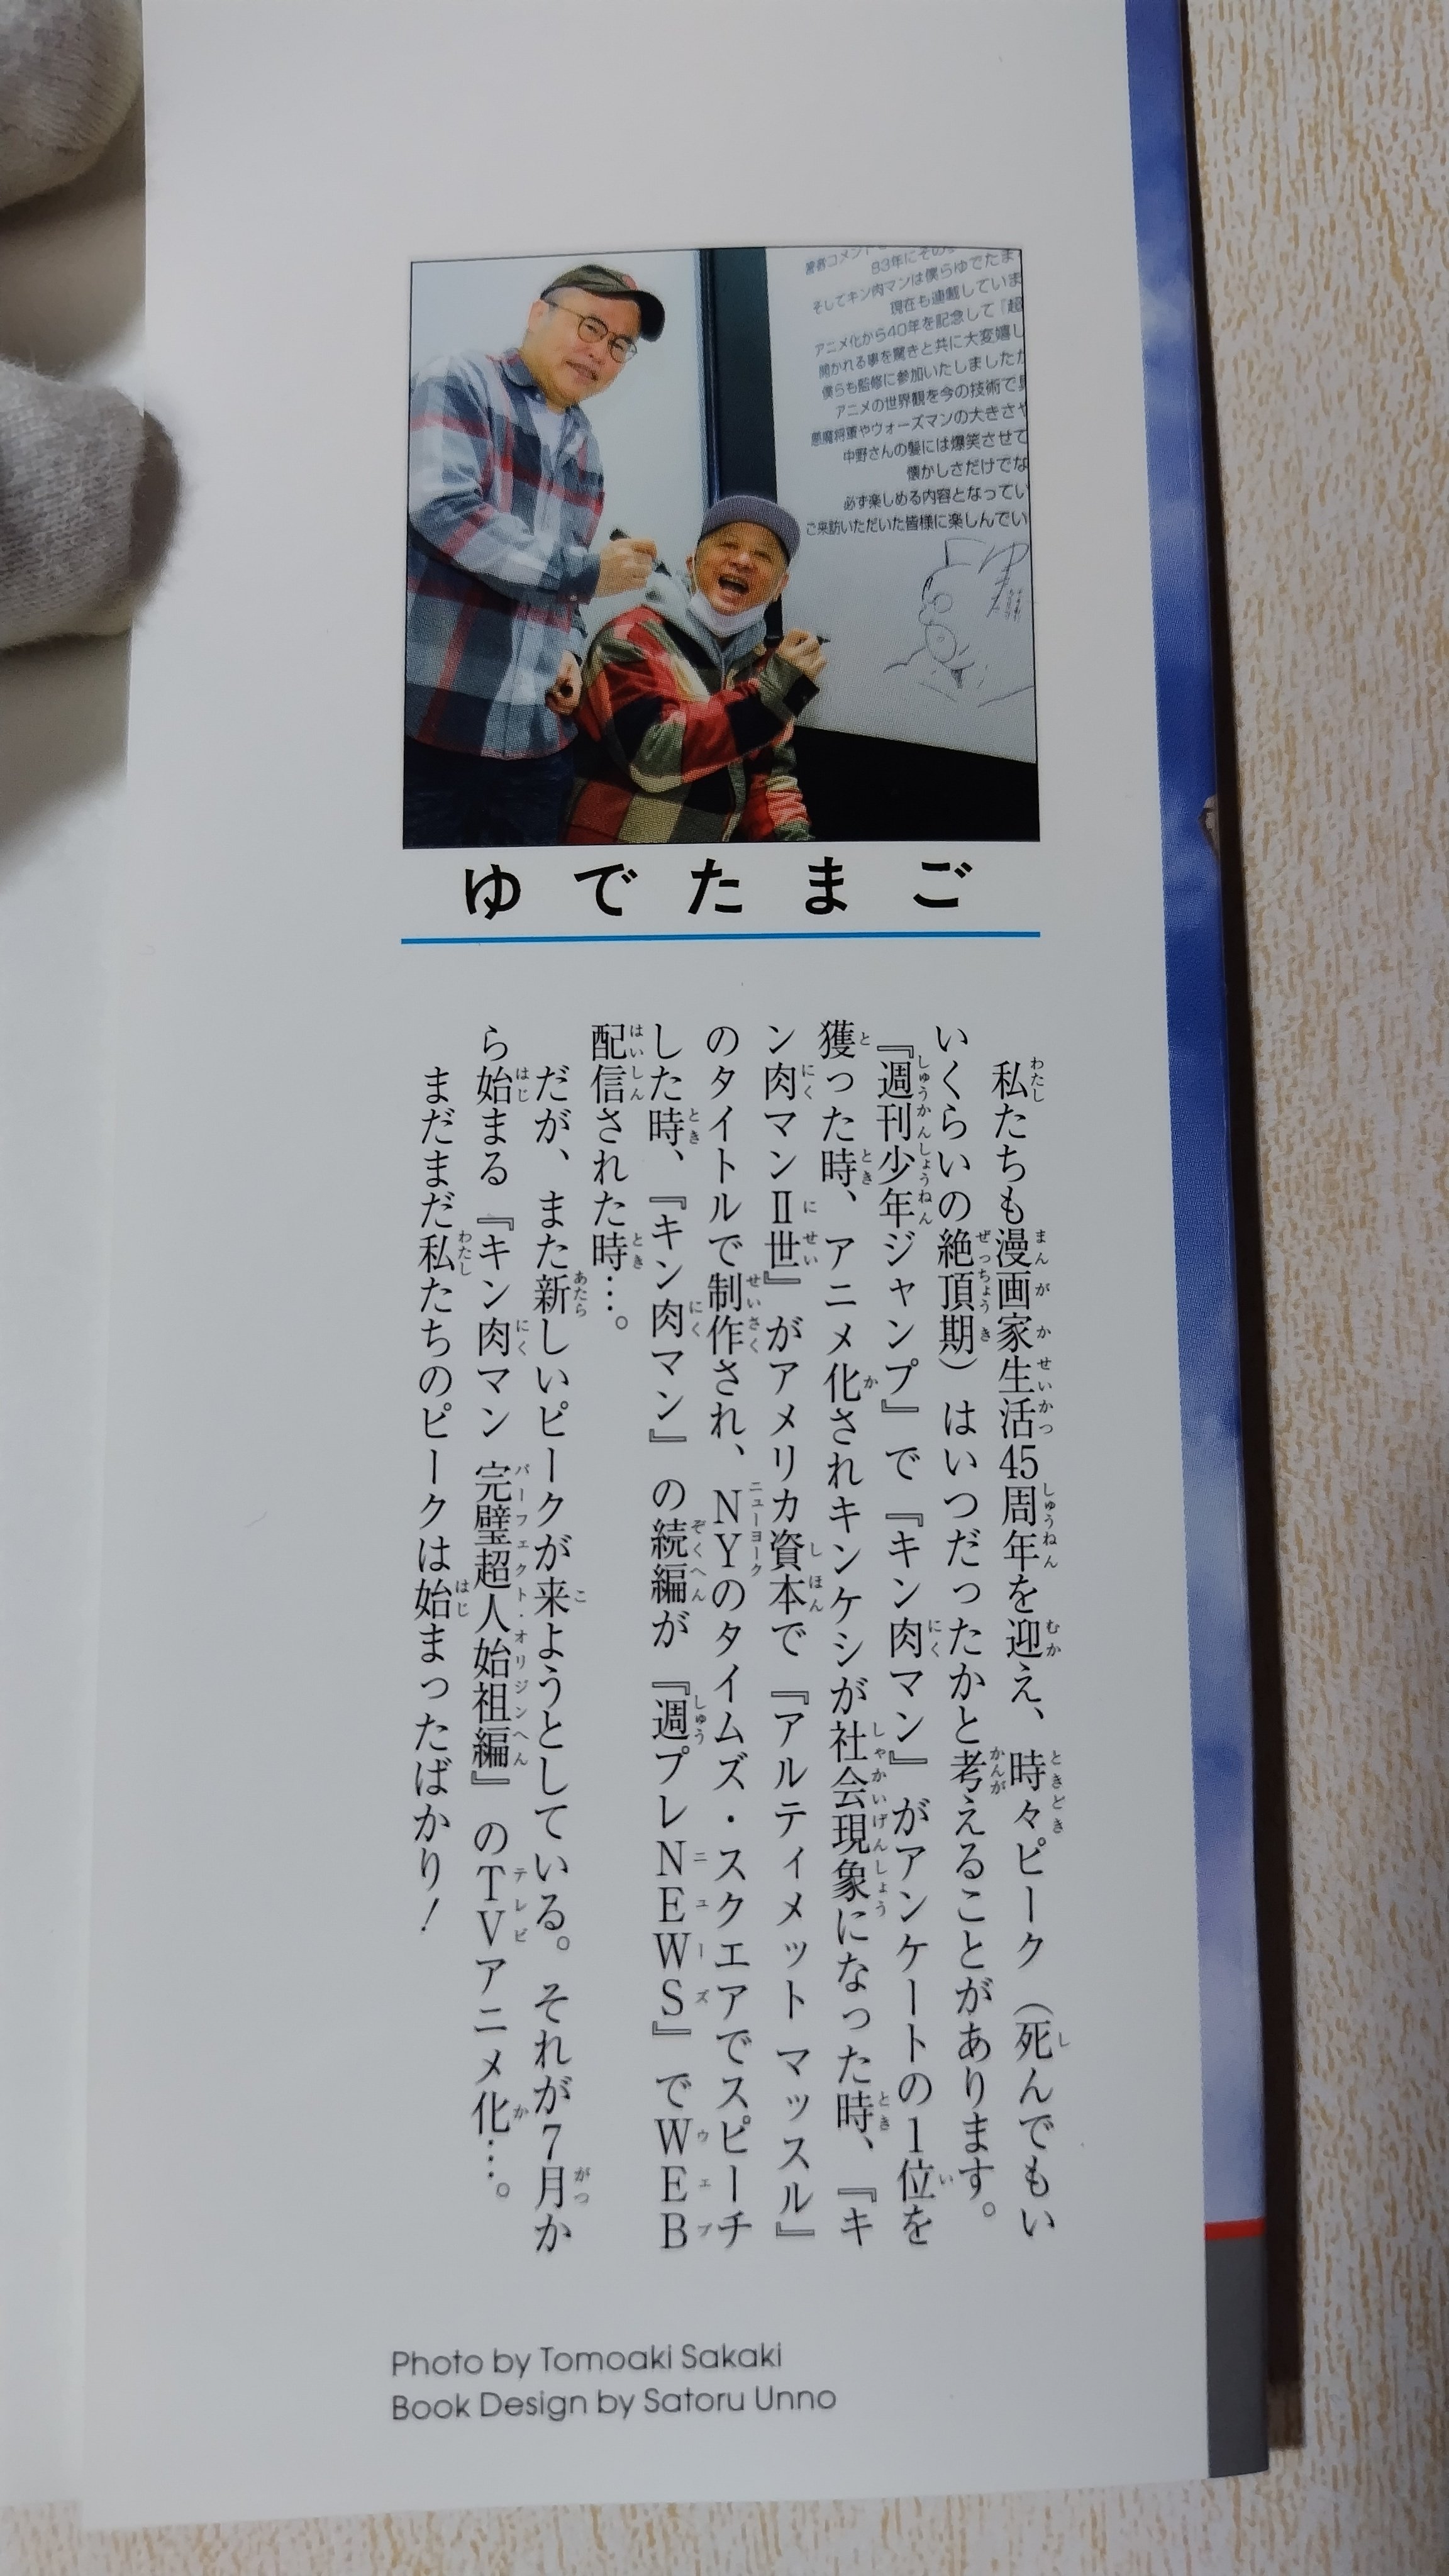 著者コメント
83年にその
そしてキン肉マンは僕らゆでたま
現在も連載していま
アニメ化から40年を記念して『超
開かれる事を驚きと共に大変嬉し
僕らも監修に参加いたしましたが
アニメの世界観を今の技術で
悪魔将軍やウォーズマンの大きさや
中野さんの髪には爆笑させて
懐かしさだけでな
必ず楽しめる内容となってい
ご来訪いただいた皆様に楽しんでい
ゆでたまご
私たちも漫画家生活45周年を迎え、時々ピーク（死んでもい
いくらいの絶頂期）はいつだったかと考えることがあります。
『週刊少年ジャンプ』で『キン肉マン』がアンケートの1位を
獲った時、アニメ化されキンケシが社会現象になった時、『キ
ン肉マンⅡ世』がアメリカ資本で『アルティメット マッスル』
のタイトルで制作され、NYのタイムズ・スクエアでスピーチ
した時、『キン肉マン』の続編が『週プレNEWS』でWEB
配信された時…。
だが、また新しいピークが来ようとしている。それが7月か
ら始まる『キン肉マン 完璧超人始祖編』のTVアニメ化…。
まだまだ私たちのピークは始まったばかり！
Photo by Tomoaki Sakaki
Book Design by Satoru Unno